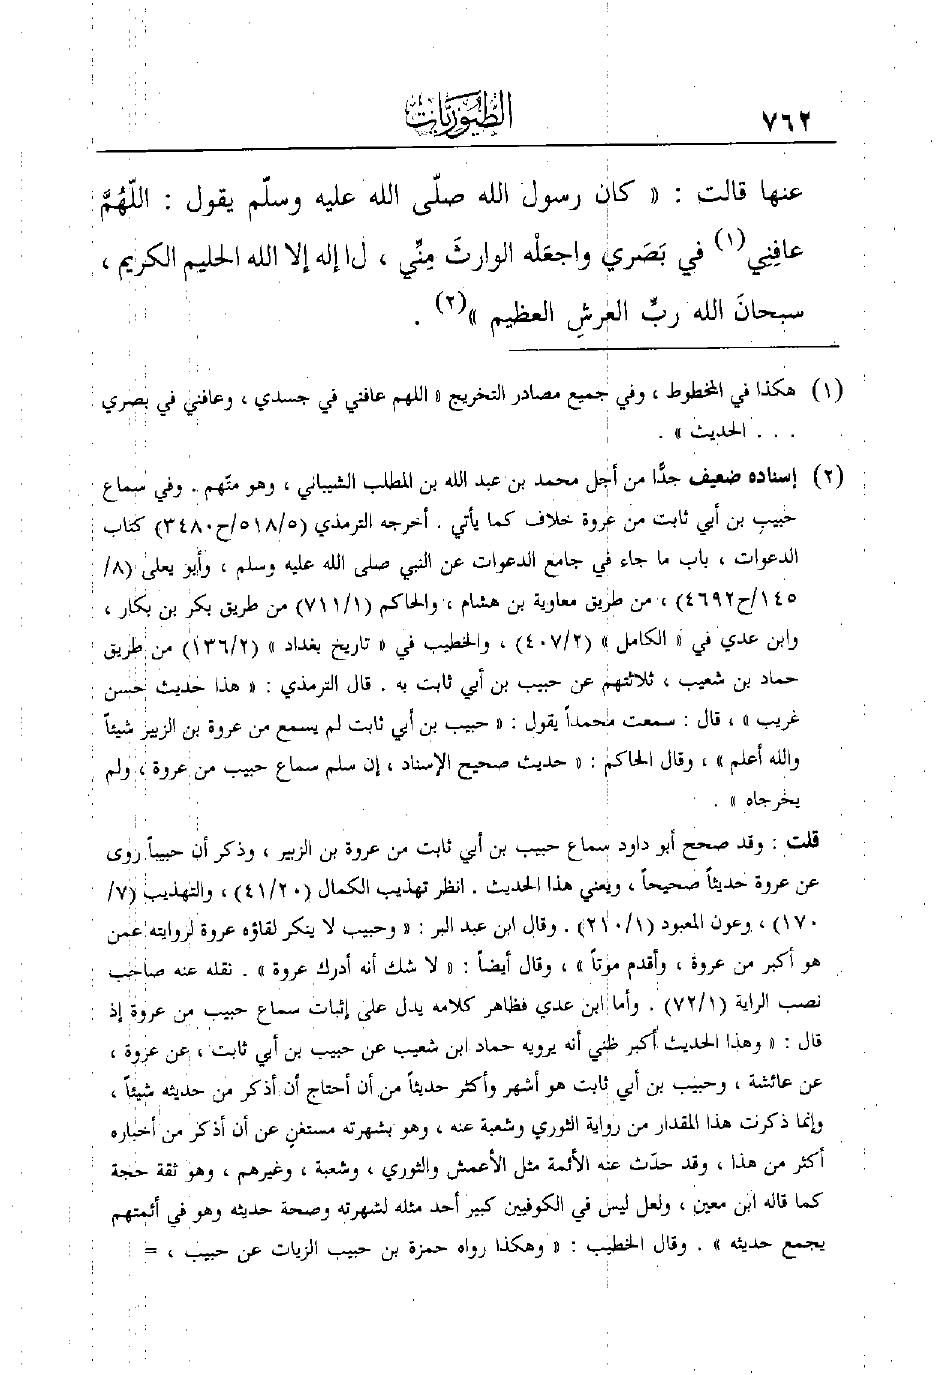 ٧٦٢
الطيوريات
عنها قالت : « كان رسول الله صلّى الله عليه وسلّم يقول : اللّهُمَّ
عافِنِي(١) في بَصَري واجعَلْه الوارثَ مِنِّي ، لا إله إلا الله الحليم الكريم ،
سبحانَ الله ربِّ العرشِ العظيم »(٢) .
(١) هكذا في المخطوط ، وفي جميع مصادر التخريج « اللهم عافني في جسدي ، وعافني في بصري
. . . الحديث » .
(٢) إسناده ضعيف جدًّا من أجل محمد بن عبد الله بن المطلب الشيباني ، وهو متّهم . وفي سماع
حبيب بن أبي ثابت من عروة خلاف كما يأتي . أخرجه الترمذي (٥/٥١٨/ح٣٤٨٠) كتاب
الدعوات ، باب ما جاء في جامع الدعوات عن النبي صلى الله عليه وسلم ، وأبو يعلى (٨/
١٤٥/ح٤٦٩٢) ، من طريق معاوية بن هشام ، والحاكم (٧١١/١) من طريق بكر بن بكار ،
وابن عدي في « الكامل » (٤٠٧/٢) ، والخطيب في « تاريخ بغداد » (١٣٦/٢) من طريق
حماد بن شعيب ، ثلاثتهم عن حبيب بن أبي ثابت به . قال الترمذي : « هذا حديث حسن
غريب » ، قال : سمعت محمداً يقول : « حبيب بن أبي ثابت لم يسمع من عروة بن الزبير شيئاً
والله أعلم » ، وقال الحاكم : « حديث صحيح الإسناد ، إن سلم سماع حبيب من عروة ، ولم
يخرجاه » .
قلت : وقد صحح أبو داود سماع حبيب بن أبي ثابت من عروة بن الزبير ، وذكر أن حبيباً روى
عن عروة حديثاً صحيحاً ، ويعني هذا الحديث . انظر تهذيب الكمال (٤١/٢٠) ، والتهذيب (٧/
١٧٠) ، وعون المعبود (٢١٠/١) . وقال ابن عبد البر : « وحبيب لا ينكر لقاؤه عروة لروايته عمن
هو أكبر من عروة ، وأقدم موتاً » ، وقال أيضاً : « لا شك أنه أدرك عروة » . نقله عنه صاحب
نصب الراية (٧٢/١) . وأما ابن عدي فظاهر كلامه يدل على إثبات سماع حبيب من عروة إذ
قال : « وهذا الحديث أكبر ظني أنه يرويه حماد ابن شعيب عن حبيب بن أبي ثابت ، عن عروة ،
عن عائشة ، وحبيب بن أبي ثابت هو أشهر وأكثر حديثاً من أن أحتاج أن أذكر من حديثه شيئاً ،
وإنما ذكرت هذا المقدار من رواية الثوري وشعبة عنه ، وهو بشهرته مستغنٍ عن أن أذكر من أخباره
أكثر من هذا ، وقد حدّث عنه الأئمة مثل الأعمش والثوري ، وشعبة ، وغيرهم ، وهو ثقة حجة
كما قاله ابن معين ، ولعل ليس في الكوفيين كبير أحد مثله لشهرته وصحة حديثه وهو في أئمتهم
يجمع حديثه » . وقال الخطيب : « وهكذا رواه حمزة بن حبيب الزيات عن حبيب ، =